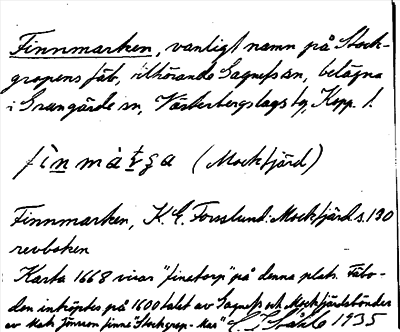 Finnmarken, vanligt namn på Stock-
gropens fäb, tillhörande Sagnefs än, belägna
i Grangärde sn, Västerbergslags tg, Kopp. l.
(Mockfjärd)
Finnmarken, K. E. Forsslund: Mockfjärd s. 130
revboken
Karta 1668 visar "finetorp" på denna plats. Fäbo-
den inköptes på 1600 talet av Sagnefs och Mockfjärdsbönder
av Mats Jönson finne "Stockgrop-Mas" 1935